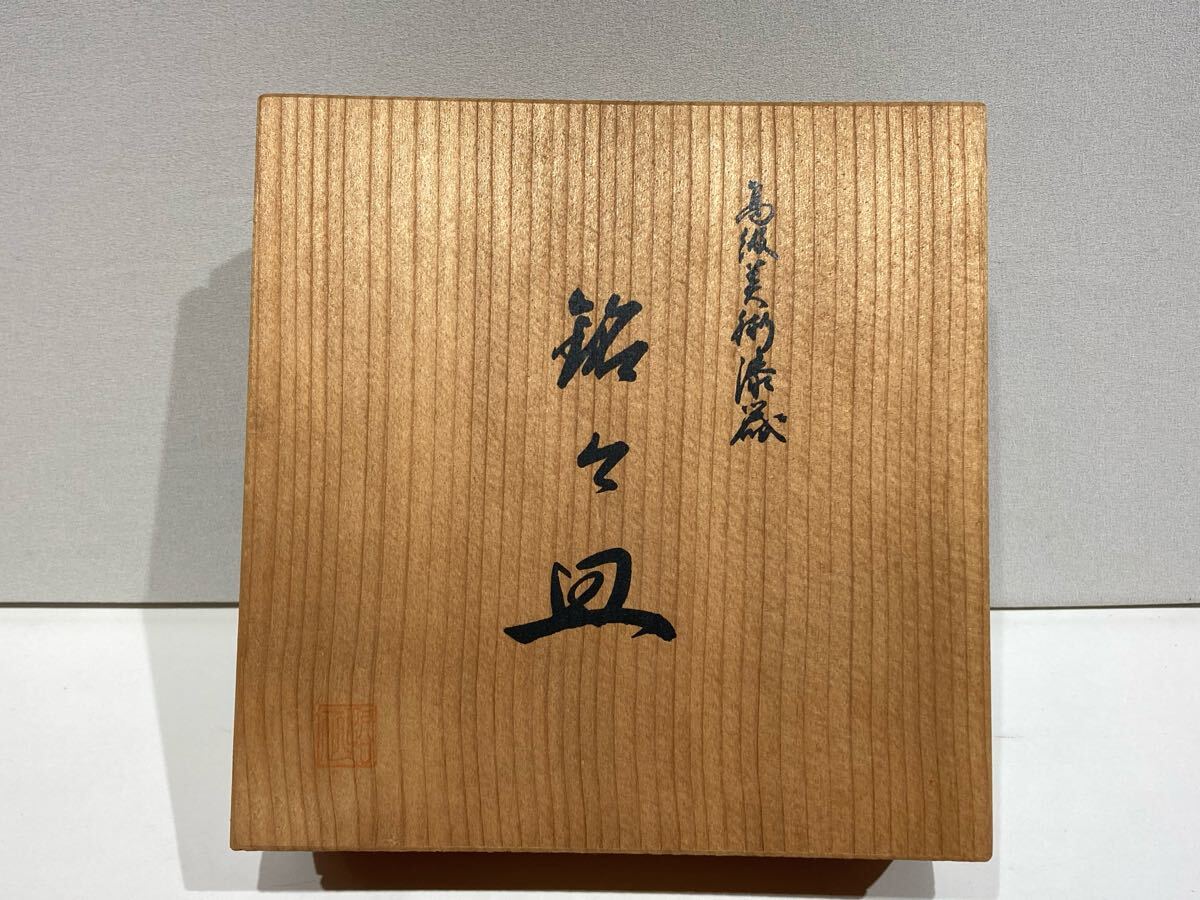 高級美術漆器
銘々皿